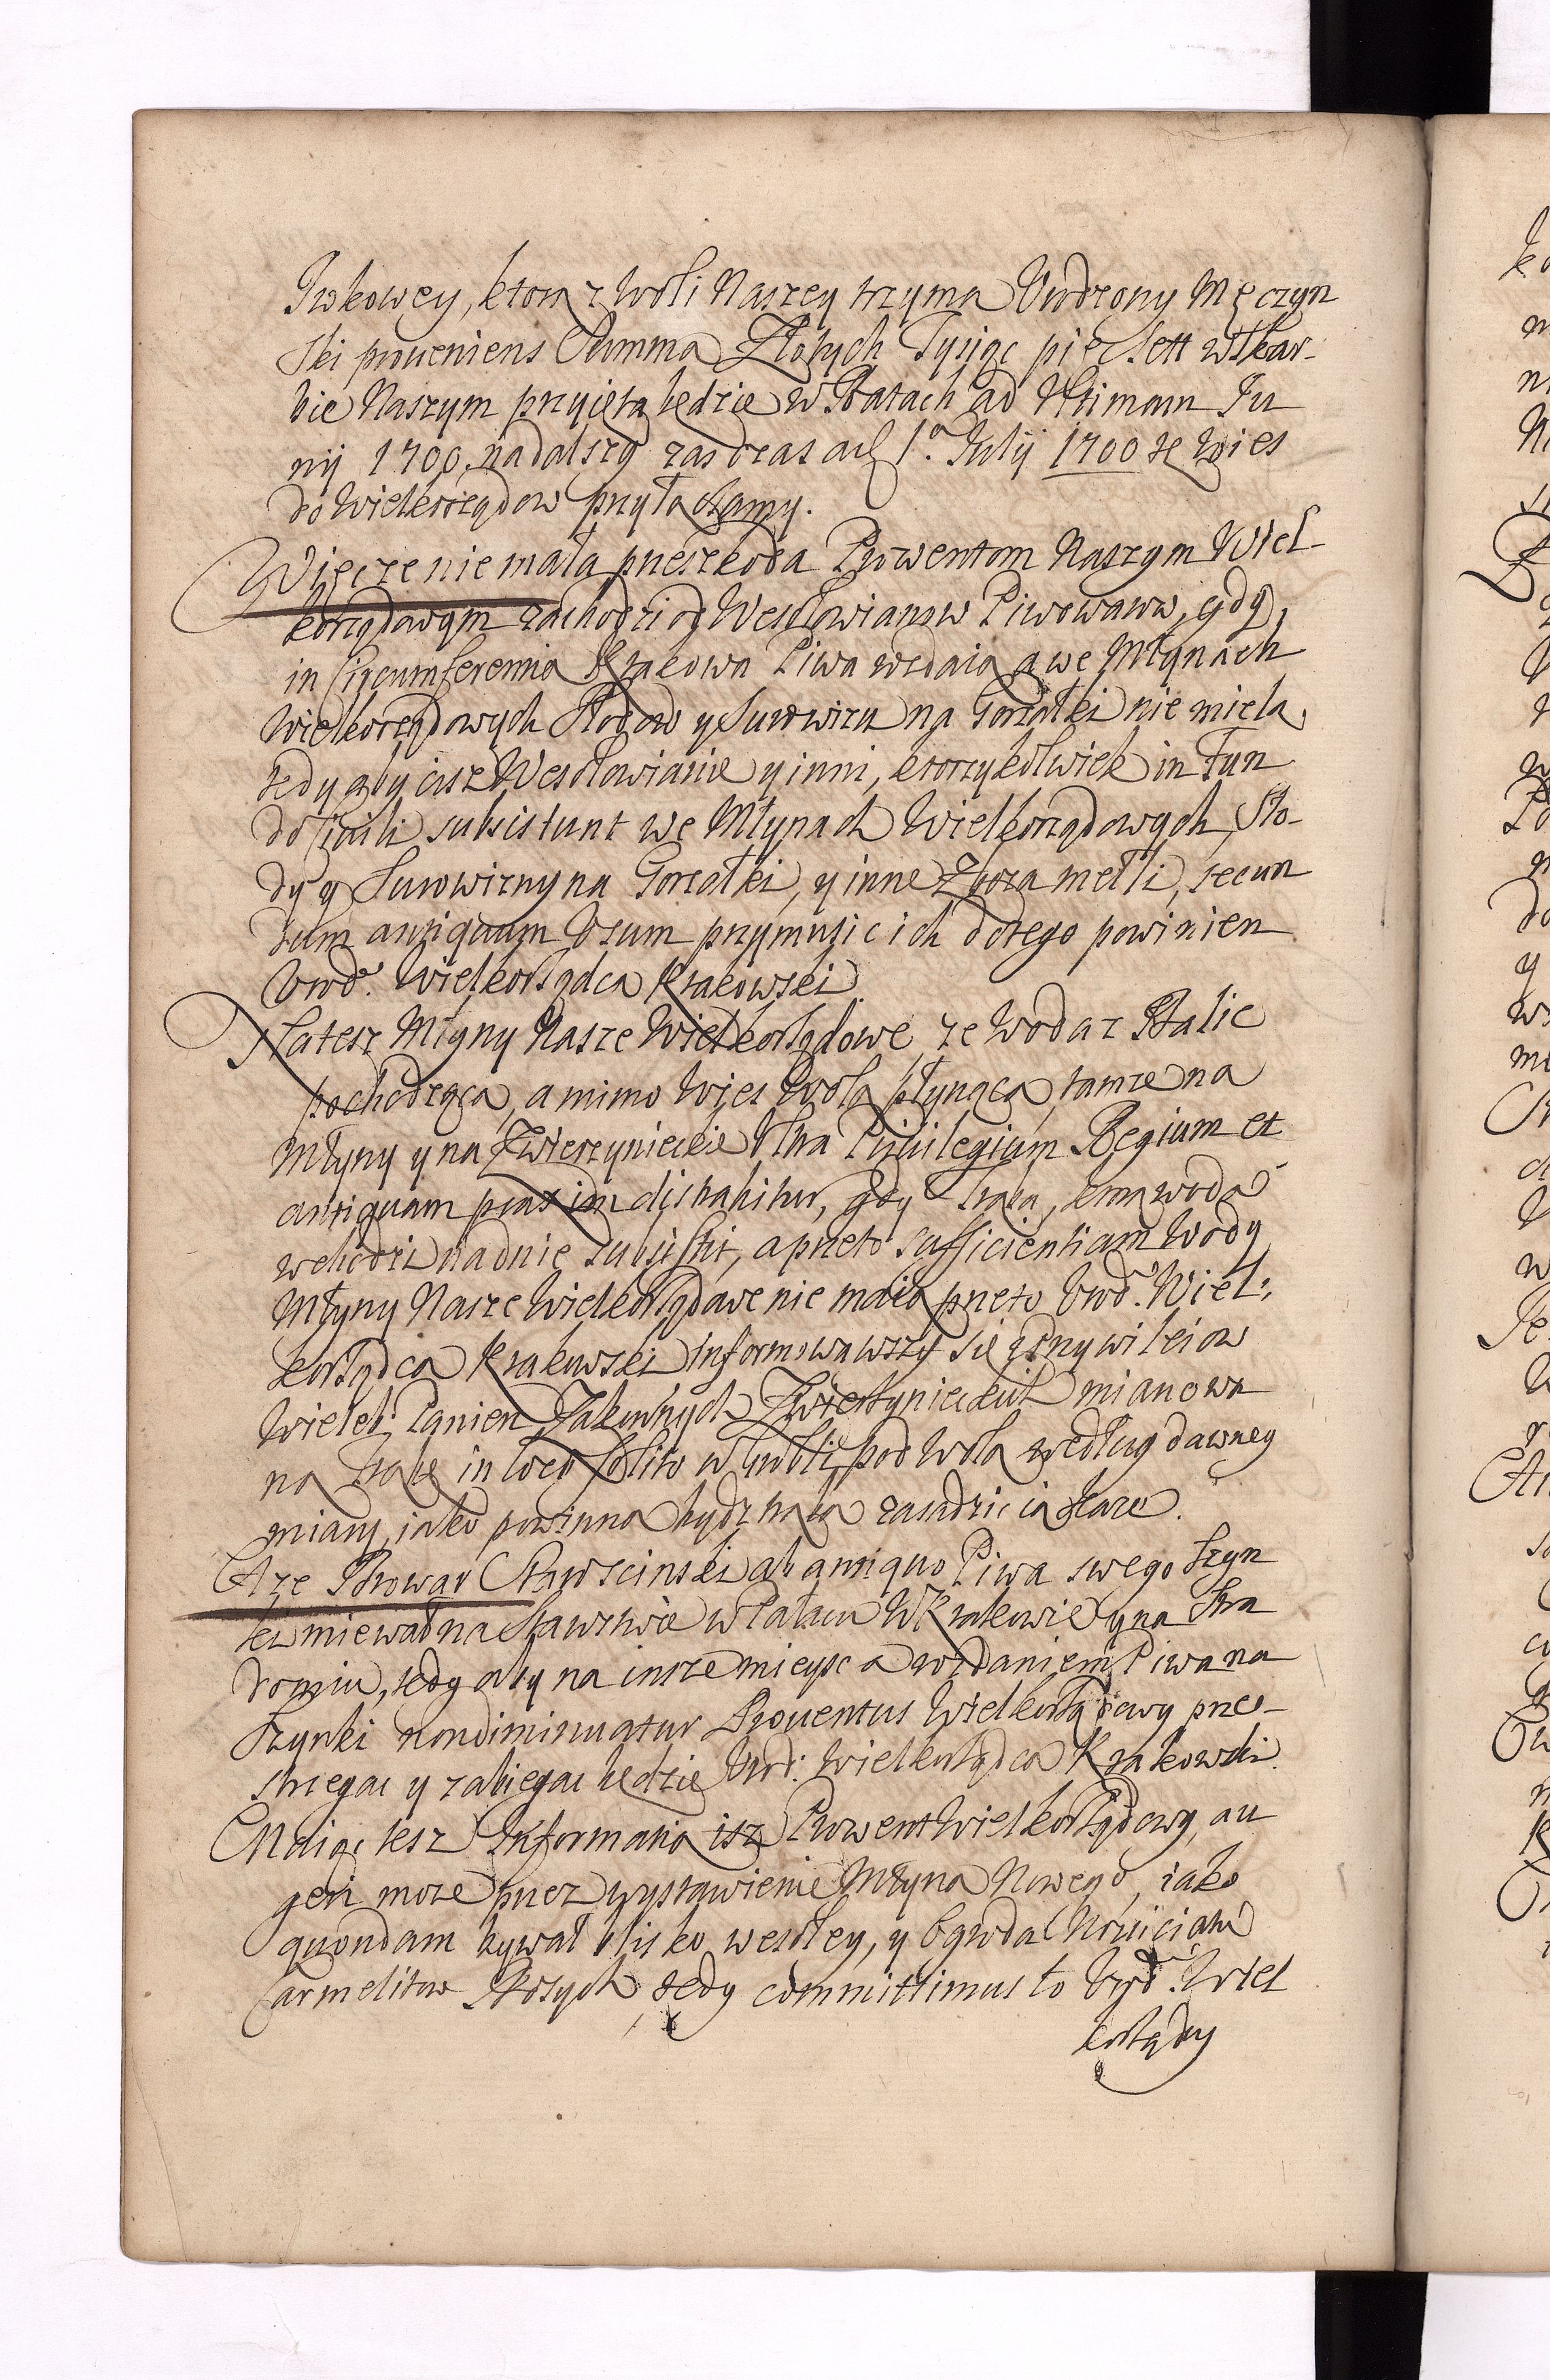 Iwkowey, ktorą z Woli Naszey trzyma Urodzony Męczyn
ski proueniens Summa Złotych Tysiąc pięcsett w Skar-
bie Naszym przyięta będzie w Ratach ad Ultimam Iu
nij 1700. na dalszy zas czas a 1ᵃ Iulij 1700 tę wies
do Wielkorządow przyłączamy.
Więc ze nie mała przeszkoda Prowentom Naszym Wiel-
korządowym zachodzi od Wesołowianow Piwowarow, gdy
in Circumferentia Krakowa Piwa wydaią a we Młynach
Wielkorządowych Słodow y Surowizn na Gorzałki nie mielą,
tedy aby cisz Wesołowianie y inni, ktorzykolwiek in Fun
do subsistunt we Młynach Wielkorządowych, Sło-
dy y Surowizny na Gorzałki, y inne Zboza mełli, secun
dum antiquum Usum przymusic ich do tego powinien
Urod. Wielkorządca Krakowski
A tesz Młyny Nasze Wielkorządowe, ze Woda z Balic
pochodząca, a mimo Wies Wolą płynąca, tamze na
Młyny y na Zwierzynieckie Ultra Priuilegium Regium et
antiquam praxim distrahitur, gdy trata, ktorą woda
wchodzi na dnie subsistit, a przeto sufficientiam Wody
Młyny Nasze Wielkorządowe nie maią przeto Urod. Wiel-
korządca Krakowski informowawszy się z Przywileiow
Wieleb. Panien Zakonnych Zwierzynieckich mianowa
na tratę in loco solito w grobli pod Wolą według dawney
miary, iako powinna bydz trata zasadzic ią kaze.
A ze Browar Czawscinski ab antiquo Piwa swego szyn
ki miewał na Stawskie w Pałacu W Krakowie y na Stra
domiu, tedy aby na insze mieysca wydaniem Piwa na
Szynki non diminuatur Prouentus Wielkorządowy prze-
strzegac y zabiegac będzie Urod. Wielkorządca Krakowski.
Maiąc tesz Informatią isz Prowent Wielkorządowy, au
geri moze przez wystawienie Młyna Nowego, iako
quondam bywał blisko Wesołey, y Ogroda
Carmelitow Bosych, tedy committimus to Urod. Wiel
korządcy